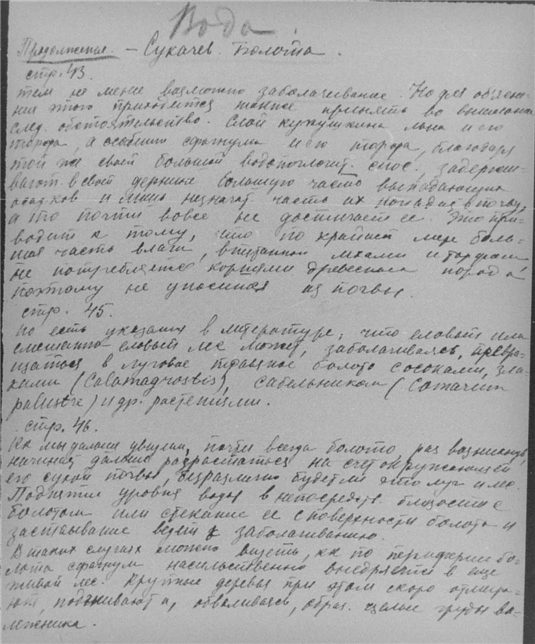 Вода
Продолжение. – Сукачев. Болота.
стр. 43.
тем не мене возможно заболачивание. Но для объясне-
ния этого приходится также принять во внимание
след. обстоятельство. Слой кукушкина льна и его
торфа, а особенно сфагнума и его торфа, благодаря
той же своей большой водопоглот. спос., задержи-
вают в своей дернине большую часть выпадающих
осадков и лишь незначит. часть их попадает в почву,
а то почти вовсе не достигает ее. Это при-
водит к тому, что по крайней мере боль-
шая часть влаги, впитанной мхами и торфом
не потребляется корнями древесных пород и
поэтому не уносится из почвы.
стр. 45.
Но есть указания в литературе, что еловый или
смешанно еловый лес может, заболачиваясь, превра-
щаться в луговое травяное болото с осоками, зла-
ками (Calamagrostis), сабельником (Comarum
palustre) и др. растениями.
стр. 46.
Как мы далее увидим, почти всегда болото, раз возникнув,
начинает дальше разрастаться на счет окружающей
его сухой почвы, безразлично будет ли это луг или лес.
Поднятие уровня воды в непосредств. близости с
болотом или стекание ее с поверхности болота и
застаивание ведет к заболачиванию.
В таких случаях можно видеть, как по периферии бо-
лота сфагнум насильственно внедряется в еще
живой лес. Крупные деревья при этом скоро отмира-
ют, подгнивают и, обваливаясь, образ. целые груды ва-
лежника.